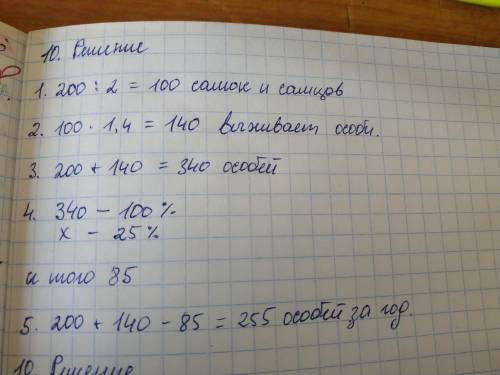 10. Решение
1. 200 : 2 = 100 самок и самцов
2. 100 · 1,4 = 140 выживает особи.
3. 200 + 140 = 340 особей
4. 340 — 100 %
х — 25 %
итого 85
5. 200 + 140 - 85 = 255 особей за год.
10. Решение